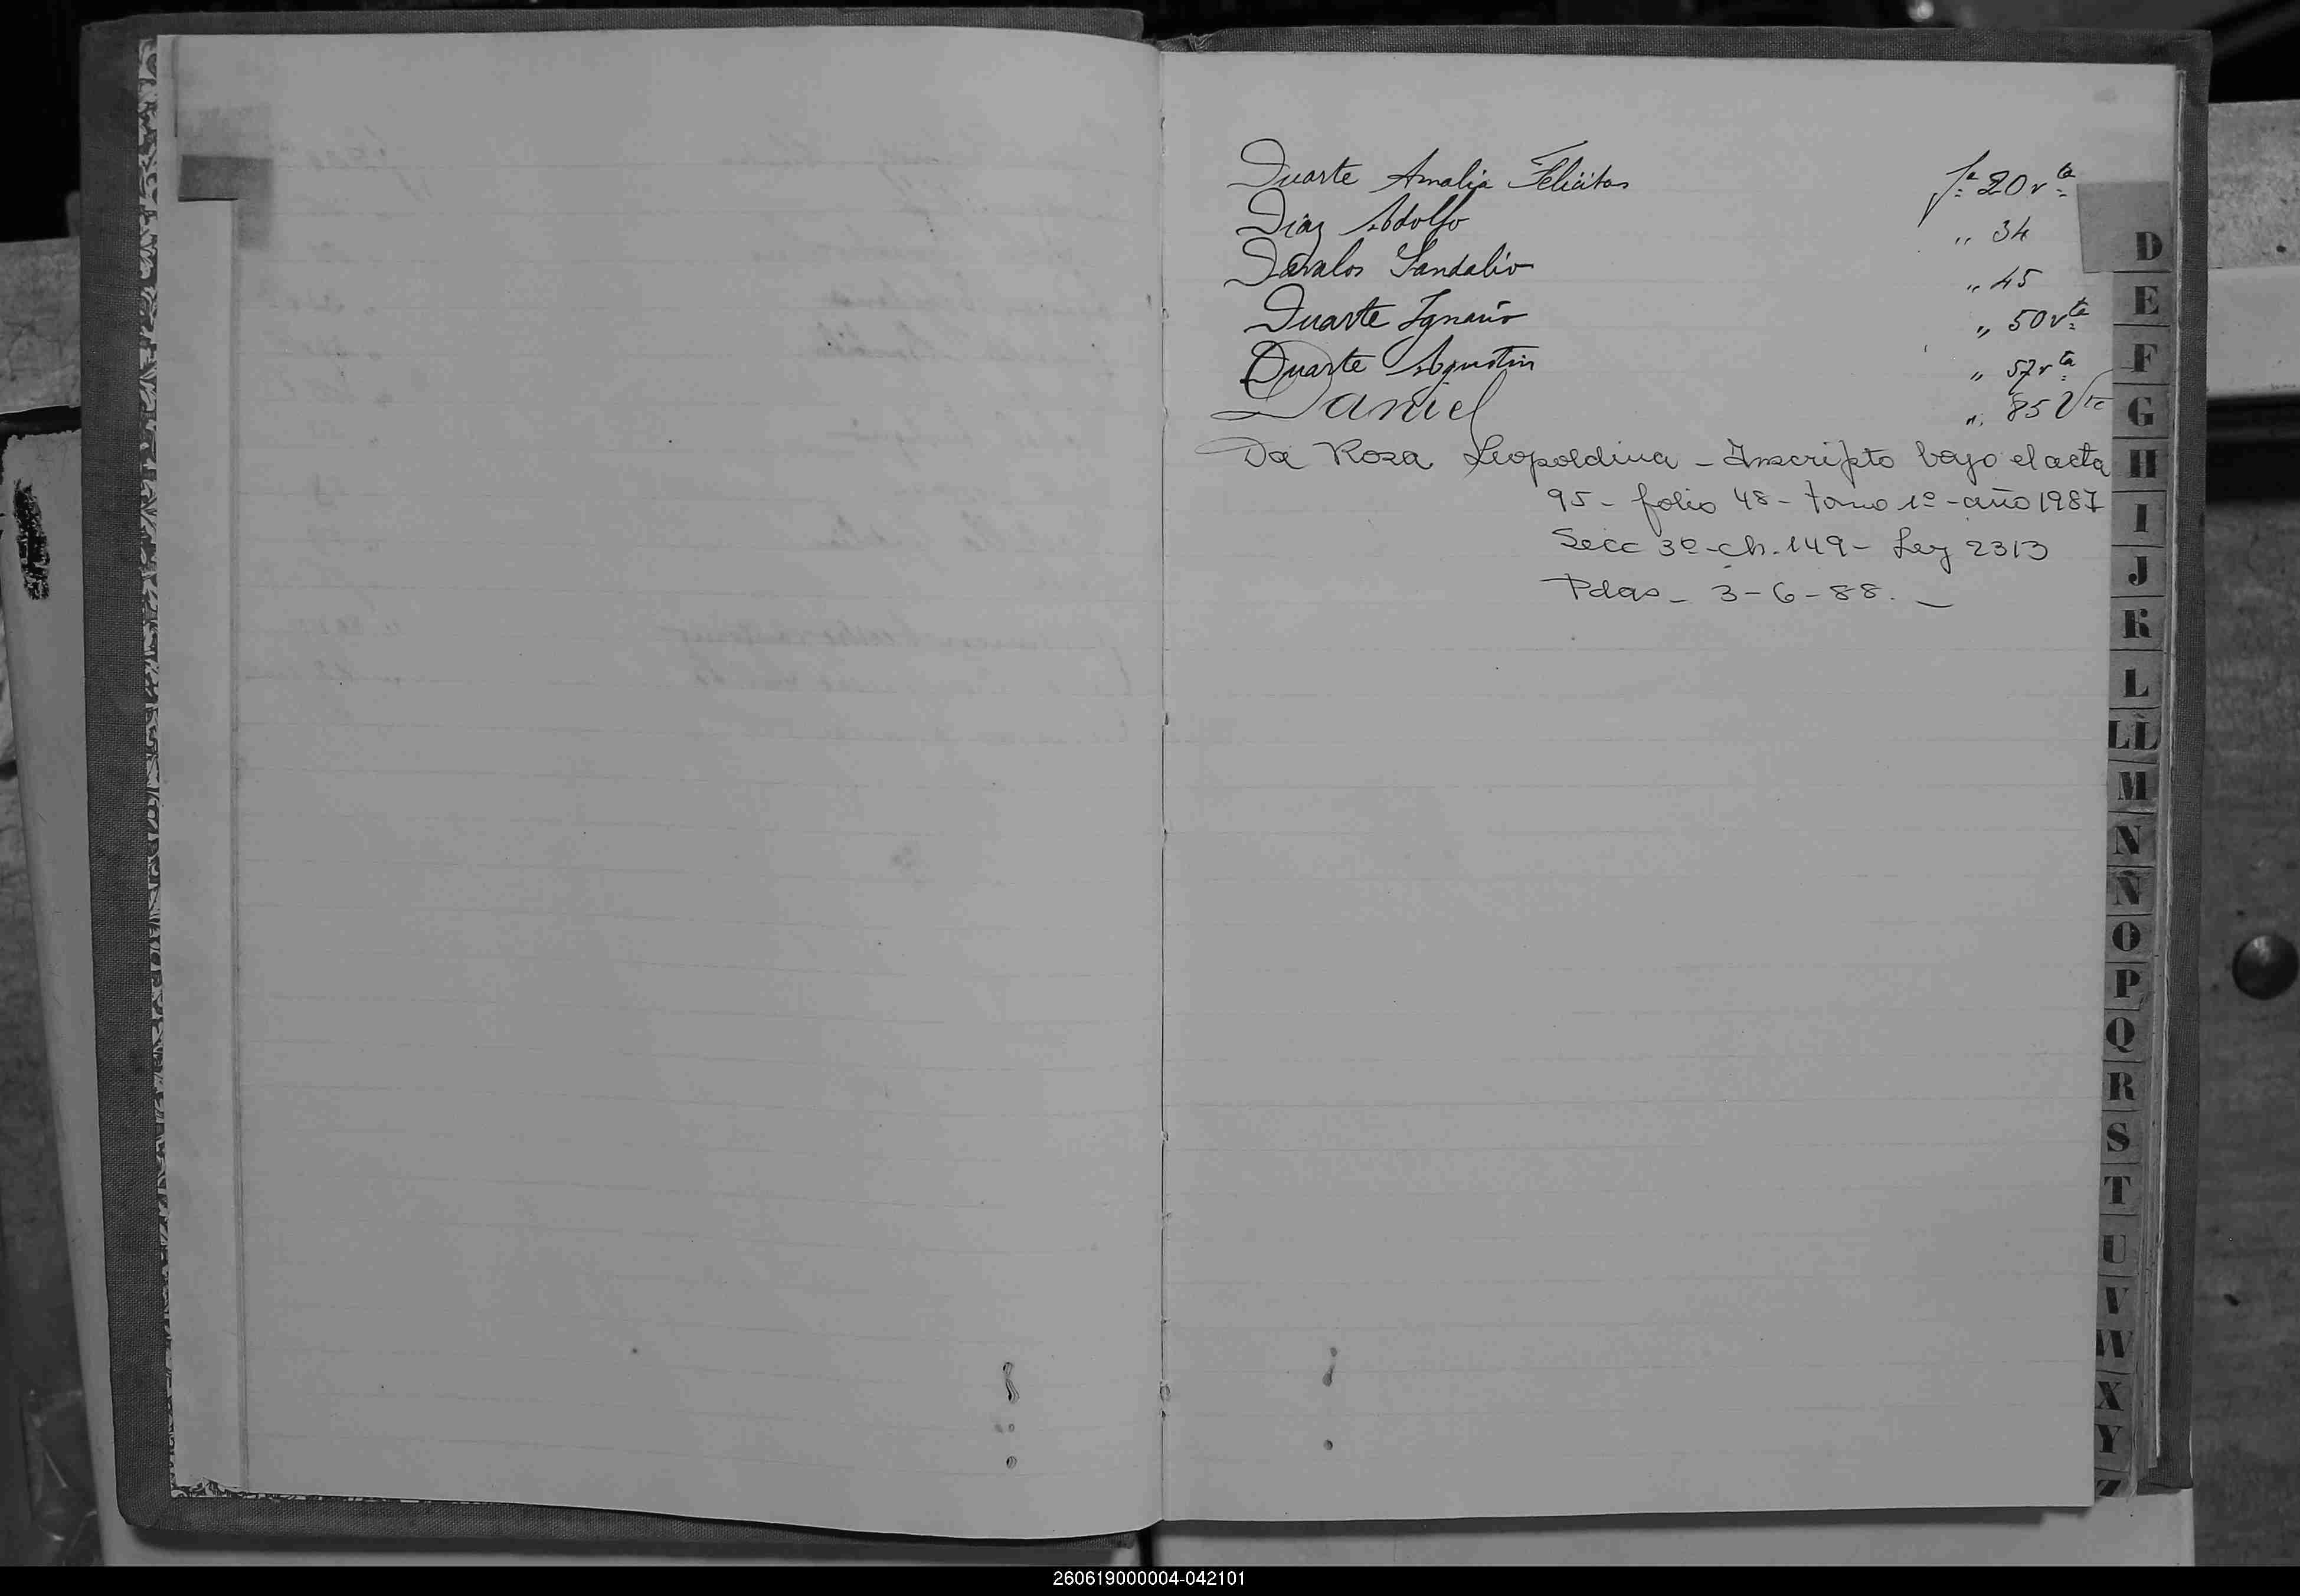 Duarte Amalia Felicitas fª 20 vta
Diaz Adolfo " 34
Davalos Sandalio " 45
Duarte Ignacio " 50 vta
Duarte Agustin " 57 vta
Daniel " 85 Vta
Da Rosa Leopoldina - Inscripto bajo el acta
95 - folio 48 - tomo 1º - año 1987
Secc 3º - ch. 149 - Ley 2313
Pdas - 3-6-88. -
D
E
F
G
H
I
J
K
L
LL
M
N
Ñ
O
P
Q
R
S
T
U
V
W
X
Y
Z
260619000004-042101